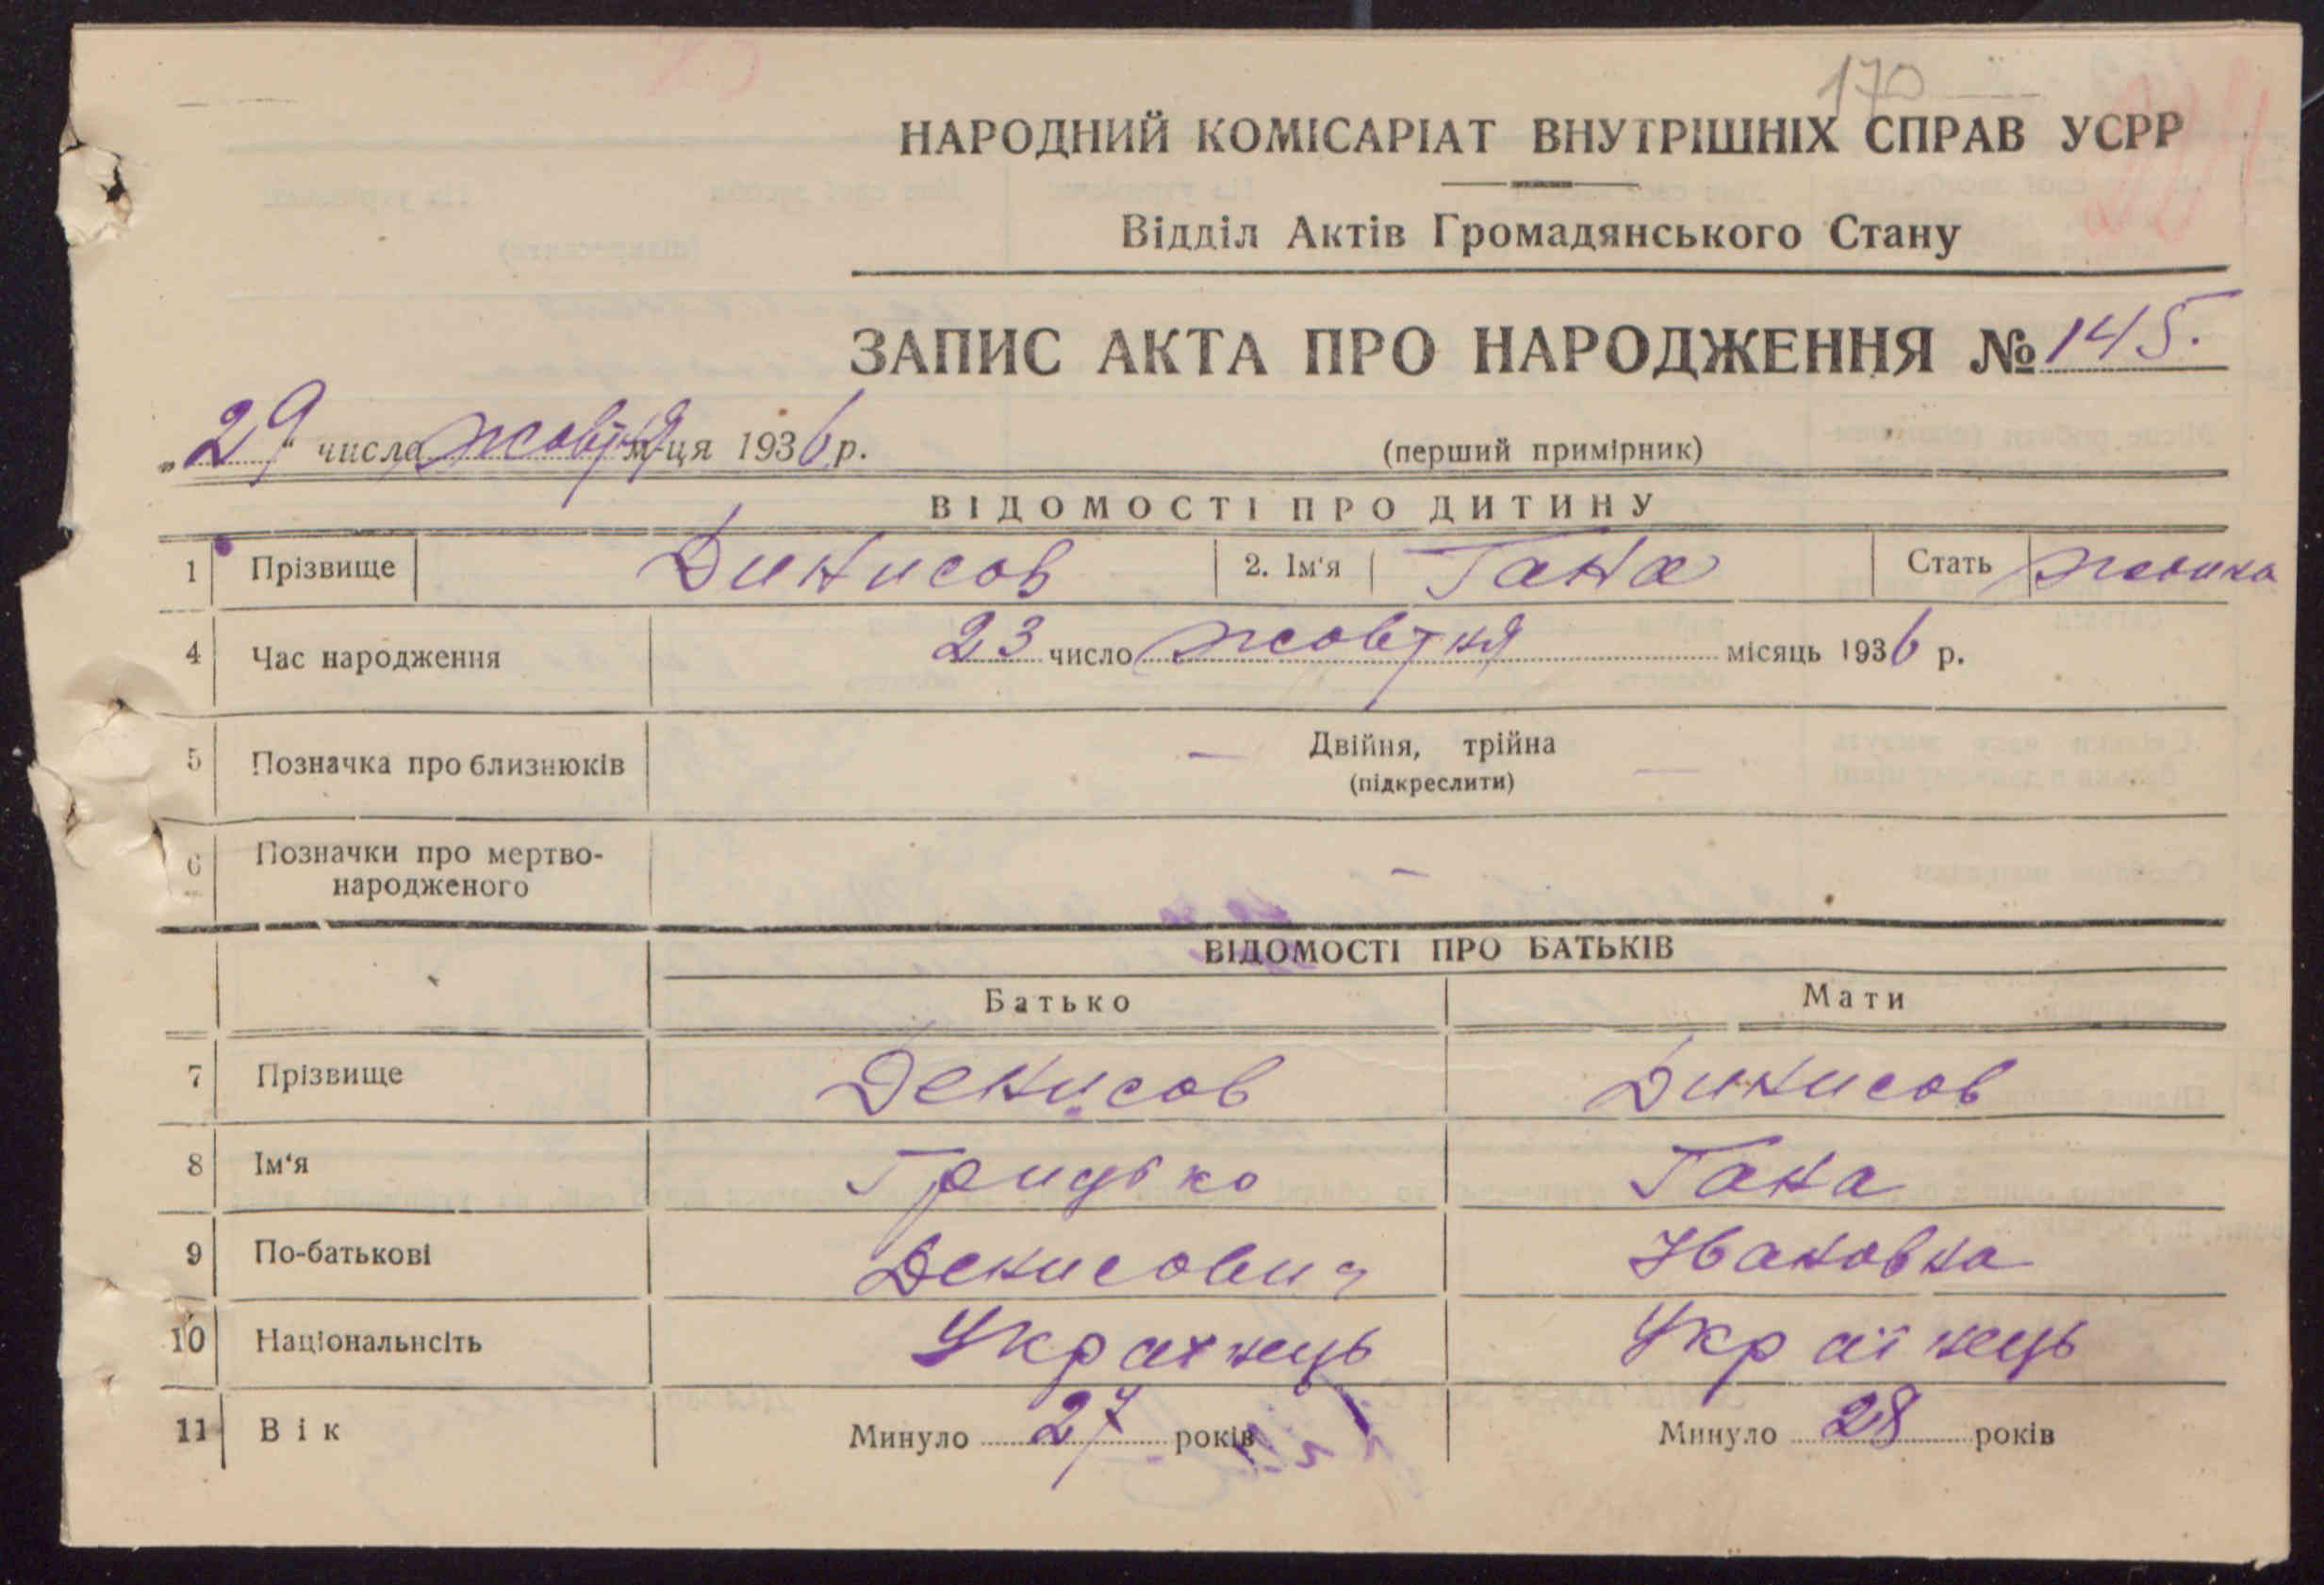 170
НАРОДНИЙ КОМІСАРІАТ ВНУТРІШНІХ СПРАВ УСРР
Відділ Актів Громадянського Стану
ЗАПИС АКТА ПРО НАРОДЖЕННЯ № 145.
„29" числа жовтня м-ця 1936 р. (перший примірник)
ВІДОМОСТІ ПРО ДИТИНУ
1 Прізвище Динисов 2. Ім'я Гана Стать
4 Час народження 23 число жовтня місяць 1936 р.
5 Позначка про близнюків — Двійня, трійна —
(підкреслити)
6 Позначки про мертво-
народженого —
ВІДОМОСТІ ПРО БАТЬКІВ
Батько Мати
7 Прізвище Денисов Динисов
8 Ім'я Грицько Гана
9 По-батькові Денисович Івановна
10 Національнсіть Українець Українець
11 Вік Минуло 27 років Минуло 28 років